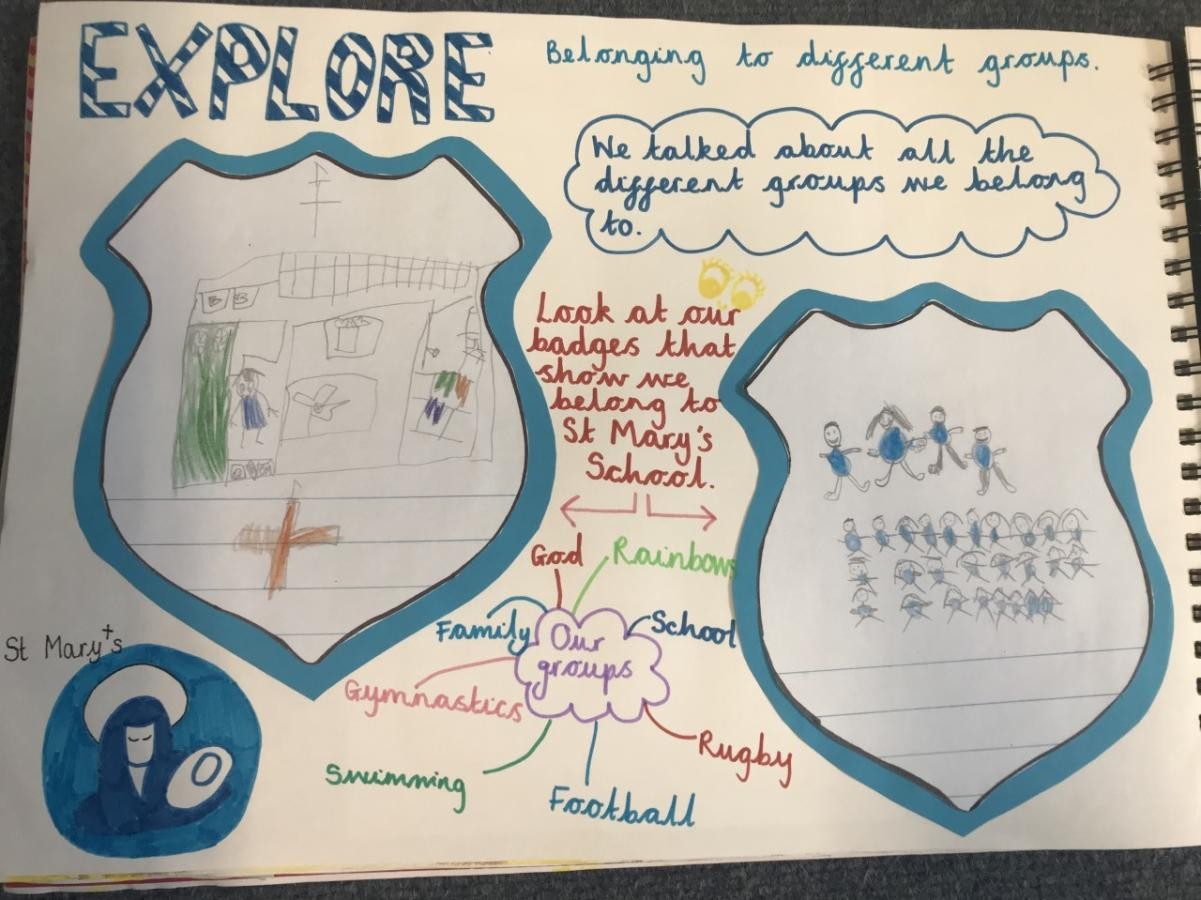 EXPLORE
Belonging to different groups.
We talked about all the
different groups we belong
to.
Look at our
badges that
show we
belong to
St Mary's
School.
God
Rainbows
Family
School
Our
groups
Gymnastics
Rugby
Swimming
Football
St Mary's